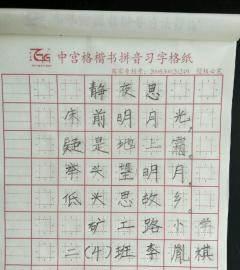 中宫格楷书拼音习字格纸
静夜思
床前明月光,
疑是地上霜。
举头望明月,
低头思故乡。
矿工路小学
二(4)班李胤棋